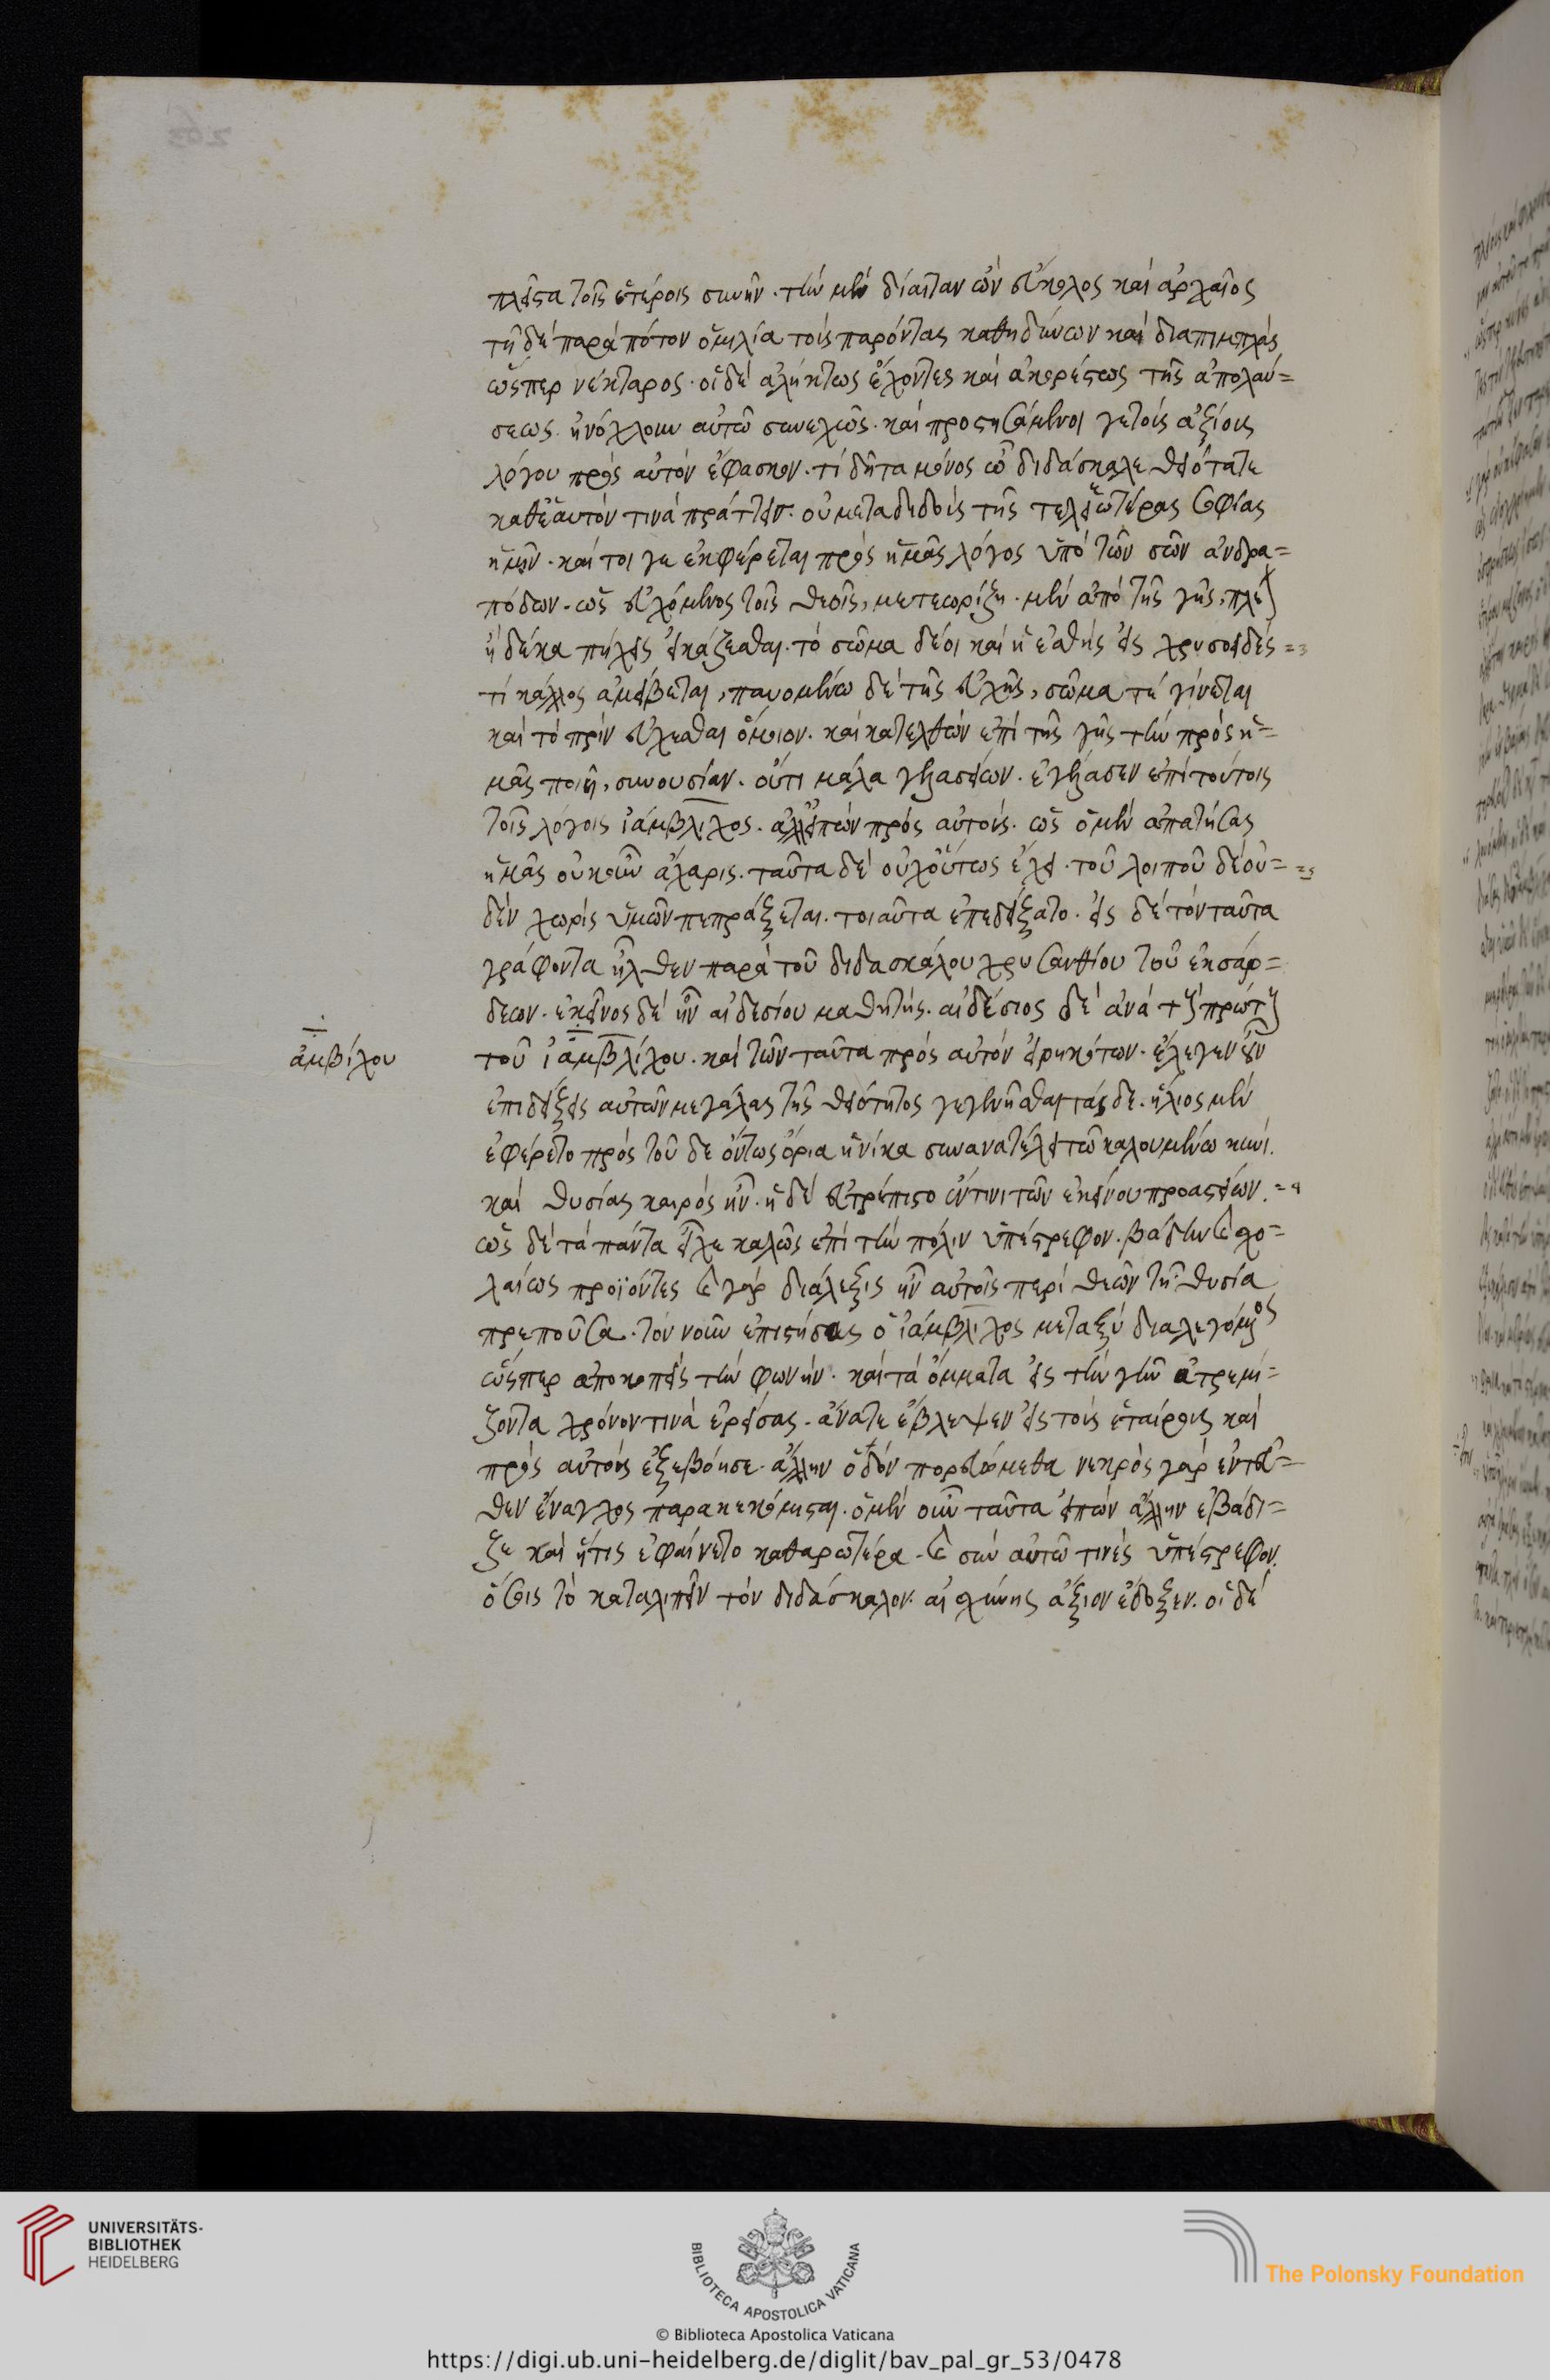 πλεῖστα τοῖς ἑτέροις συνῆν. τὴν μὲν δίαιταν ὢν εὔκολος καὶ ἀρχαῖος
τῇ δὲ παρὰ πότον ὁμιλία τοὺς παρόντας καθηδύνων καὶ διαπιμπλὰς
ὥσπερ νέκταρος. οἱ δὲ ἀλήκτως ἔχοντες καὶ ἀκορέστως τῆς ἀπολαύ=
σεως. ἠνόχλουν αὐτῶ συνεχῶς. καὶ προστησάμενοι γε τοὺς ἀξίους
λόγου πρὸς αὐτὸν ἔφασκον. τί δῆτα μόνος ὦ διδάσκαλε θειότατε
καθ' ἑαυτόν τινα πράττεις. οὐ μεταδιδοὺς τῆς τελεωτέρας σοφίας
ἡμῖν. καί τοι γε ἐκφέρεται πρὸς ἡμᾶς λόγος ὑπὸ τῶν σῶν ἀνδρα=
πόδων. ὡς εὐχόμενος τοῖς θεοῖς, μετεωρίζῃ. μὲν ἀπὸ τῆς γῆς, πλεῖον
ἢ δέκα πήχεις εἰκάζεσθαι. τὸ σῶμα δέ οι καὶ ἡ ἐσθὴς εἰς χρυσοειδές =
τι κάλλος ἀμείβεται, παυομένω δὲ τῆς εὐχῆς, σῶμα τὲ γίνεται
καὶ τὸ πρὶν εὔχεσθαι ὅμοιον. καὶ κατελθὼν ἐπὶ τῆς γῆς τὴν πρὸς ἡ=
μᾶς ποιῇ, συνουσίαν. οὔτι μάλα γελασείων. ἐγέλασεν ἐπὶ τούτοις
τοῖς λόγοις ἰάμβλιχος. ἀλλ' εἰπὼν πρὸς αὐτοὺς. ὡς ὁ μὲν ἀπατήσας
ἡμᾶς οὐκ ἦν ἄχαρις. ταῦτα δὲ οὐχ οὕτως ἔχει. τοῦ λοιποῦ δὲ οὐ=
δὲν χωρὶς ὑμῶν πεπράξεται. τοιαῦτα ἐπεδείξατο. εἰς δὲ τὸν ταῦτα
γράφοντα ἦλθεν παρὰ τοῦ διδασκάλου χρυσανθίου τοῦ ἐκ σάρ=
δεων. ἐκεῖνος δὲ ἦν αἰδεσίου μαθητής. αἰδέσιος δὲ ἀνὰ τοὺς πρώτους
ἀμβίλου
τοῦ ἰαμβλίχου. καὶ τῶν ταῦτα πρὸς αὐτὸν εἰρηκότων. ἔλεγεν οὖν
ἐπιδείξεις αὐτῶν μεγάλας τῆς θειότητος γεγενῆσθαι τάς δε. ἥλιος μὲν
ἐφέρετο πρὸς τοῦ δε ὄντως ὅρια ἡνίκα συνανατέλει τῶ καλουμένω κυνί.
καὶ θυσίας καιρὸς ἦν. ἡ δὲ εὐτρέπιστο ἔν τινι τῶν ἐκείνου προαστείων.=
ὡς δὲ τὰ πάντα εἶχε καλῶς ἐπὶ τὴν πόλιν ὑπέστρεφον. βάδην καὶ σχο=
λαίως προϊόντες καὶ γὰρ διάλεξις ἦν αὐτοῖς περὶ θεῶν τῇ θυσία
πρέπουσα. τὸν νοῦν ἐπιστήσας ὁ ἰάμβλιχος μεταξὺ διαλεγόμενος
ὥσπερ ἀποκοπεὶς τὴν φωνήν. καὶ τὰ ὄμματα εἰς τὴν γῆν ἀτρεμί=
ζοντα χρόνον τινὰ ἐρείσας. ἀνά τε ἔβλεψεν εἰς τοὺς ἑταίρους καὶ
πρὸς αὐτοὺς ἐξεβόησε. ἄλλην ὁδὸν πορευώμεθα νεκρὸς γὰρ ἐντεῦ=
θεν ἔναγχος παρακεκόμισται. ὁ μὲν οὖν ταῦτα εἰπὼν ἄλλην ἐβάδι=
ζε καὶ ἥτις ἐφαίνετο καθαρωτέρα. καὶ σὺν αὐτῶ τινὲς ὑπέστρεφον.
ὅσοις τὸ καταλιπεῖν τὸν διδάσκαλον. αἰσχύνης ἄξιον ἔδοξεν. οἱ δὲ
UNIVERSITÄTS-
BIBLIOTHEK
HEIDELBERG
BIBLIOTECA APOSTOLICA VATICANA
The Polonsky Foundation
© Biblioteca Apostolica Vaticana
https://digi.ub.uni-heidelberg.de/diglit/bav_pal_gr_53/0478